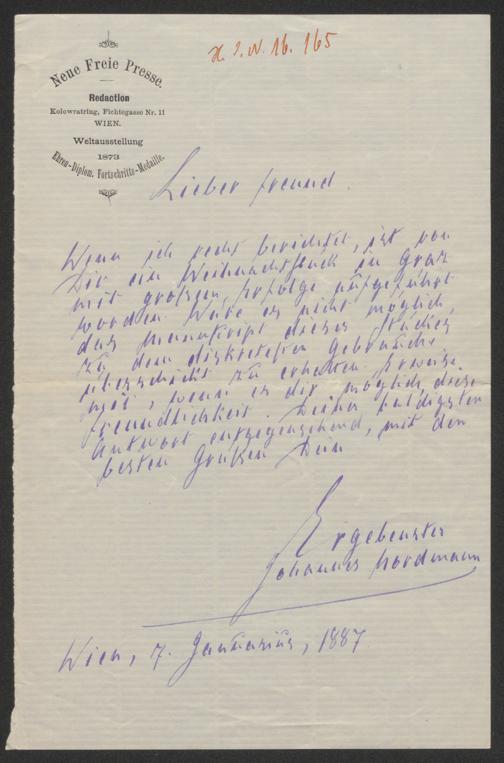 H. I. N. 16.165
Neue Freie Presse.
Redaction
Kolowratring, Fichtegasse Nr. 11
WIEN.
Weltausstellung
1873
Ehren-Diplom. Fortschritts-Medaille.
Lieber Freund
Wenn ich recht berichtet, ist von
Dir ein Weihnachtsstück in Graz
mit großem Erfolge aufgeführt
worden. Wäre es nicht möglich,
das Manuscript dieses Stückes
zu dem diskretesten Gebrauche
zu erhalten
mir, wenn es dir möglich, diese
Freundlichkeit. Deiner baldigsten
Antwort entgegensehend, mit den
besten Grüßen Dein
Ergebenster
Johannes Nordmann
Wien, 7. Januarius, 1887